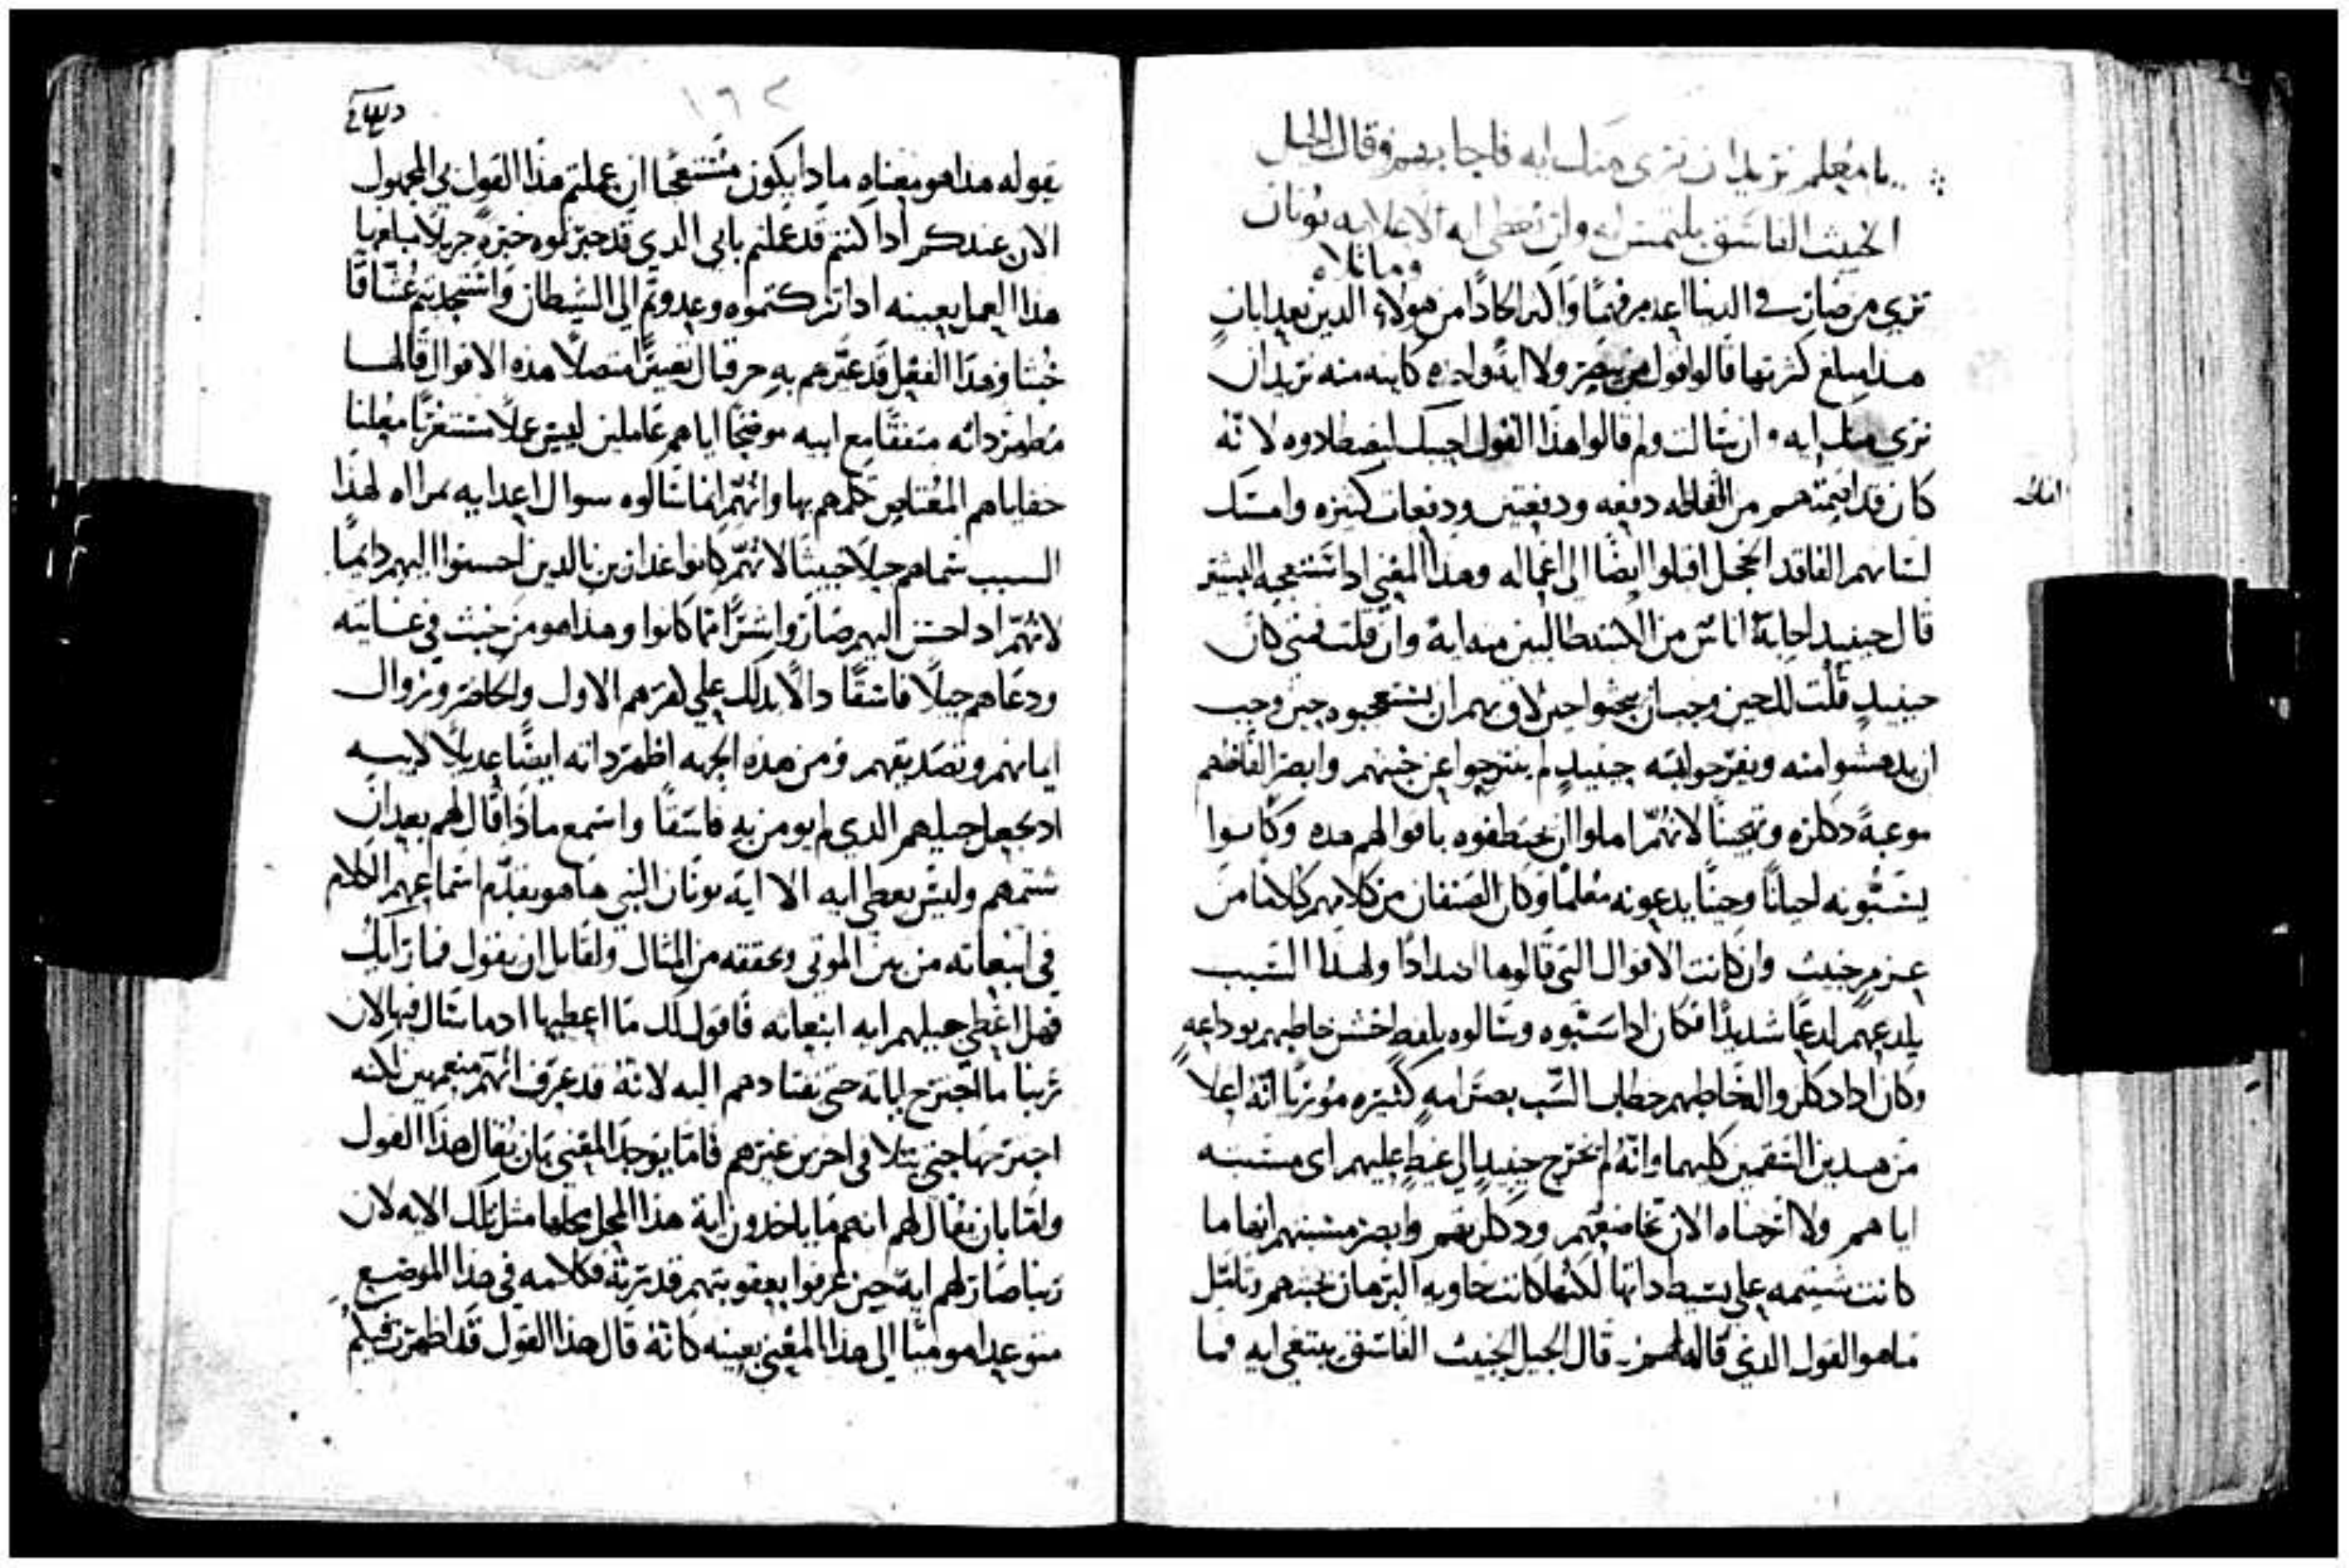 يا معلم نريد ان نرى منك ايه فاجابهم وقال الجيل
الخبيث الفاسق يلتمس ايه ولن تعطى ايه الا علامه يونان
وما تلاه
ترى من صار في الدنيا اعدم فهمًا واكبر الحادًا من هولاء الدين بعد ايات
هدا مبلغ كثرتها قالوا قول من يبصر ولا ايه واحده كاينه منه نريد ان
نرى منك ايه وان سالت ولم قالوا هدا القول اجبتك ليصطادوه لانه
كان قد ابكمهم من الفاظه دفعه ودفعتين ودفعات كثيره وامسك
لسانهم الفاقد الخجل اقبلوا ايضًا الى اعماله وهدا المعنى اد استعجبه البشير
قال حينيد اجابه اناس من الكتبه طالبين منه ايه وان قلت فمتى كان
حينيد قلت لك حين وجب ان يخجوا حين لاق بهم ان يستعجبوه حين وجب
ان يدهشوا منه ويفرجوا لبه حينيد لم ينزحوا عن خبثهم وابصر الفاظهم
موعبةً دكلزه وتخبثًا لانهم املوا ان يختطفوه باقوالهم هده وكانوا
يسبونه احيانًا وحينًا يدعونه معلمًا وكان الصنفان من كلامهم كلاهما من
عزم خبيث وان كانت الاقوال التي قالوها اضدادًا ولهدا السبب
يلدعهم لدعًا شديدًا فكان ادا سبوه وسالوه بلفظ اخشن خاطبهم بوداعةٍ
وكان ادا دكلزوا له خاطبهم خطاب السب بصرامه كثيره موريًا انه اعلا
من هدين السقمين كليهما وانه لم يخرج حينيد الى غيظ عليهم اى مسبه
اياهم ولا ارخاه الان تخاضعهم ودكلزتهم وابصر مسبتهم انها ما
كانت شتيمه على بسيط داتها لكنها كانت حاويه البرهان بخبثهم وتامل
ما هو القول الدي قاله لهم قال الجيل الخبيث الفاسق يبتغى ايه فما
١٦٢
يقوله هدا هو معناه مادا يكون مستعجبًا ان عملتم هدا القول بي المجهول
الان عندكم ادا كنتم قد عملتم بابي الدي قد خبرتموه خبرةً جزيلًا مبلغها
هدا العمل بعينه ادا تركتموه وعدوتم الى الشيطان واستجدبتم عشاقًا
خبثا وهدا الفعل قد عيرهم به حزقيال تعييرًا متصلًا هده الاقوال قالها
مظهرًا داته متفقًا مع ابيه موضحًا اياهم عاملين ليس عملًا مستغربًا معلنا
خفاياهم المعتاص حلهم بها وانهم انما سالوه سوال اعدايه بمراه لهدا
السبب سماهم جيلًا خبيثًا لانهم كانوا غدارين بالدين احسنوا اليهم دايمًا
لانهم اد احسن اليهم صاروا شرًا مما كانوا وهدا هو من خبث في غايته
ودعاهم جيلًا فاسقًا دالًا بدلك على كفرهم الاول والحاضر وزوال
ايمانهم وتصديقهم ومن هده الجهه اظهر داته ايضًا عديلًا لابيه
اد يجعل جيلهم الدي لم يومن به فاسقًا واسمع مادا قال لهم بعد ان
شتمهم وليس يعطى ايه الا ايه يونان النبي ها هو يقدم اسماعهم الكلام
في انبعاثه من بين الموتى ويحققه من المثال ولقايل ان يقول فما رايك
فهل اعطى جيلهم ايه انبعاثه فاقول لك ما اعطيها اد ما سال فيها لان
ربنا ما اجترح اياته حتى يقتادهم اليه لانه قد عرف انهم متعمهين لكنه
اجترحها حتى يتلافى اخرين غيرهم فاما يوجد المعنى بان يقال هدا القول
واما بان يقال لهم انهم ما ياخدون ايه هدا المحل محلها مثل تلك الايه لان
ربنا صار لهم ايه حين عرفوا بعقوبتهم قدرته فكلامه في هدا الموضع
متوعد لهم موميًا الى هدا المعنى بعينه كانه قال هدا القول قد اظهرت فيكم